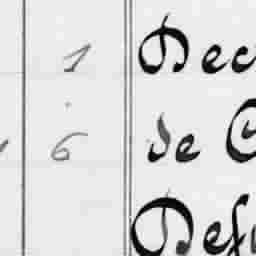 1 Dec
6 de C
Def